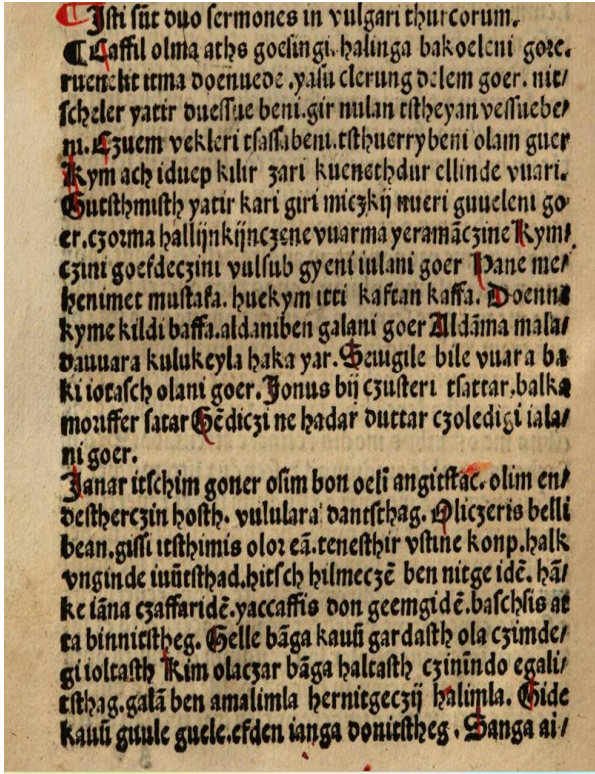 ¶Isti sūt duo sermones in vulgari thurcorum.
¶Caffil olma aths goesingi. halinga bakoeleni gore.
ruenekit itma doenuede .yasu clerung delem goer. nit/
scheler yatir duessue beni.gir nulan tstheyan vessuebe/
ni. Czuem vekleri tsassabeni.tsthuerry beni olam guer
Kym ach iduep kilir zari kuenethdur ellinde vuari.
Gutsthmisth yatir kari giri miczkij nueri guueleni go
er.czorma hallijnkijnczene vuarma yeramāczine Kym/
czini goesdeczini vulsub gyeni iulani goer Hane me/
henimet mustafa. huekym itti kaftan kaffa. Doenna
kyme kildi baffa.aldaniben galani goer Aldāma mala/
dauuara kulukeyla haka yar. Seuugile bile vuara ba
ki iotasch olani goer. Jonus bij czusteri tsattar.balka
moriffer satar Gēdiczi ne hadar duttar czoledigi iala/
ni goer.
Janar itschim goner osim bon oelī angitstac. olim en/
destherczin hosth. vululara dantsthag. Oliczeris belli
bean.gissi itsthimis olor eā.tenesthir vstine konp.halk
vnginde iuūtsthad.hitsch hilmeczē ben nitge idē. hā/
ke iāna czaffaridē.yaccaffis don geemgidē.baschsis at
ta binnitstheg. Gelle bāga kauū gardasth ola czimde/
gi ioltasth Kim olaczar bāga haltasth czinīndo egali/
tsthag.galā ben amalimla hernitgeczij halimla. Gide
kauū guule guele.efden ianga donitstheg. Sanga ai/